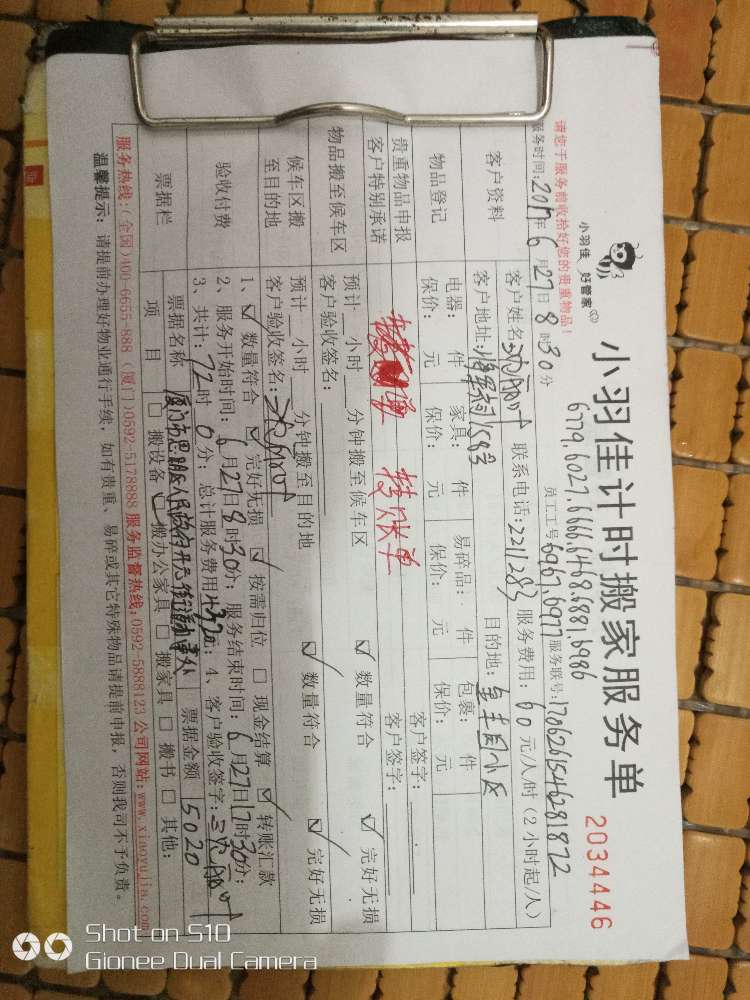 小羽佳 好管家
小羽佳计时搬家服务单
2034446
请您于服务前收拾好您的贵重物品！
6779.6027.6666.6468.6881.6986
员工工号:6967.6977 服务联号:1706261546281872
服务时间:2017年6月27日8时30分
客户资料
客户姓名: 联系电话:2211283 服务费用:60元/人/时(2小时起/人)
客户地址:将军祠1983 目的地:金丰园小区
物品登记
电器: 件 家具: 件 易碎品: 件 包裹: 件
保价: 元 保价: 元 保价: 元 保价: 元
贵重物品申报 客户签字:
客户特别承诺 客户签字:
转账单
物品搬至候车区
预计 小时 分钟搬至候车区 ☑数量符合 ☑完好无损
客户验收签名:
候车区搬至目的地
预计 小时 分钟搬至目的地 ☑数量符合 ☑完好无损
客户验收签名:
验收付费
1、☑数量符合 ☑完好无损 ☑按需归位 □现金结算 ☑转账汇款
2、服务开始时间:6月27日8时30分;服务结束时间:6月27日17时30分;
3、共计:72时0分;总计服务费用4320元;4、客户验收签字:
票据栏
票据名称 厦门市思明区人民政府开元街道办事处 票据金额 5020
项目 □搬设备 ☑搬办公家具 □搬家具 □搬书 □其他:
服务热线:(全国)400-6655-888 (厦门)0592-5178888 服务监督热线:0592-5888123 公司网站:www.xiaoyujia.com
温馨提示：请提前办理好物业通行手续，如有贵重、易碎或其它特殊物品请提前申报，否则我司不予负责。
Shot on S10
Gionee Dual Camera